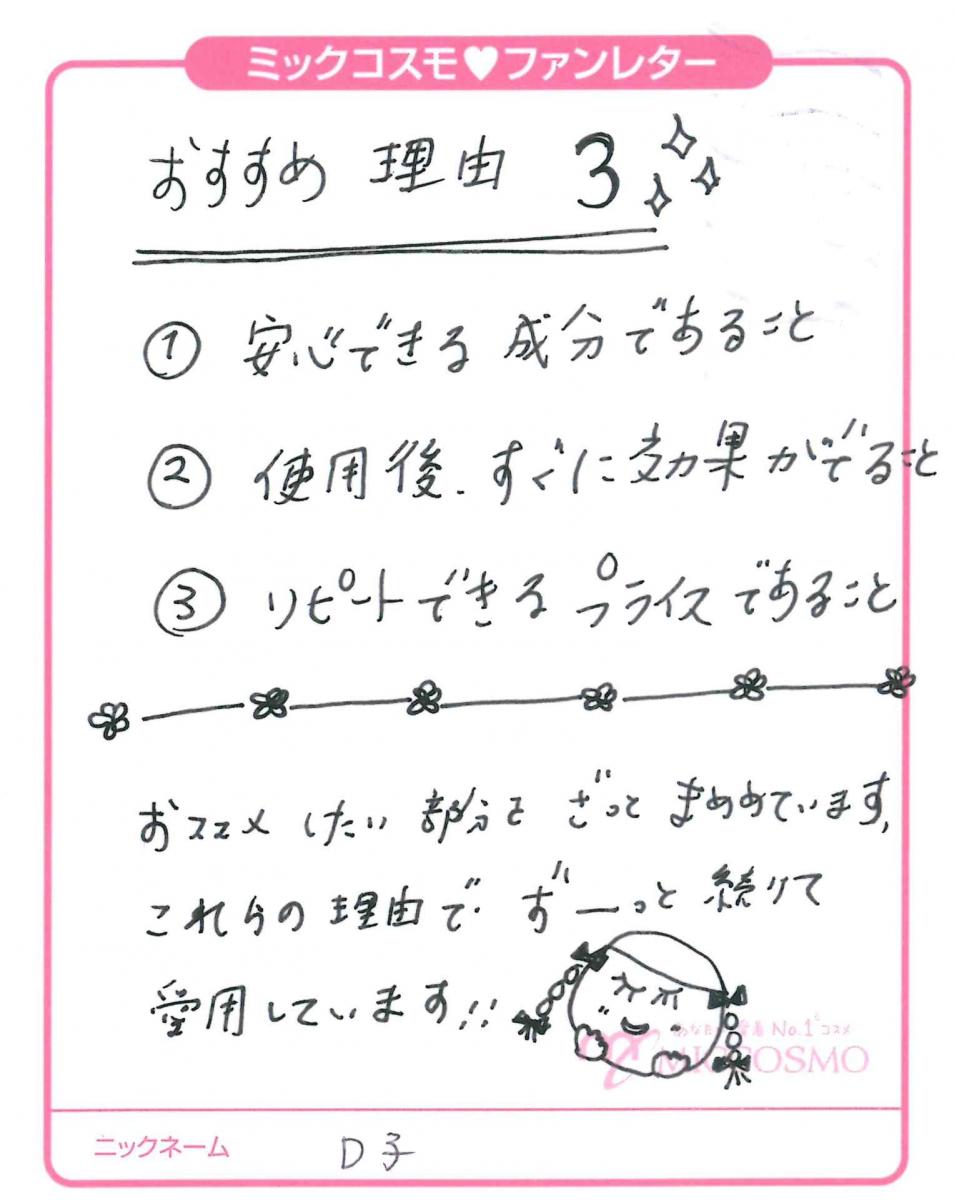 ミックコスモ♥ファンレター
おすすめ 理由 3
① 安心できる 成分であること
② 使用後、すぐに効果がでること
③ リピートできる プライスであること
おススメ したい 部分を ざっと まめめています。
これらの 理由で ずーっと 続けて
愛用しています!!
No.1コスメ
MICCOSMO
ニックネーム D子